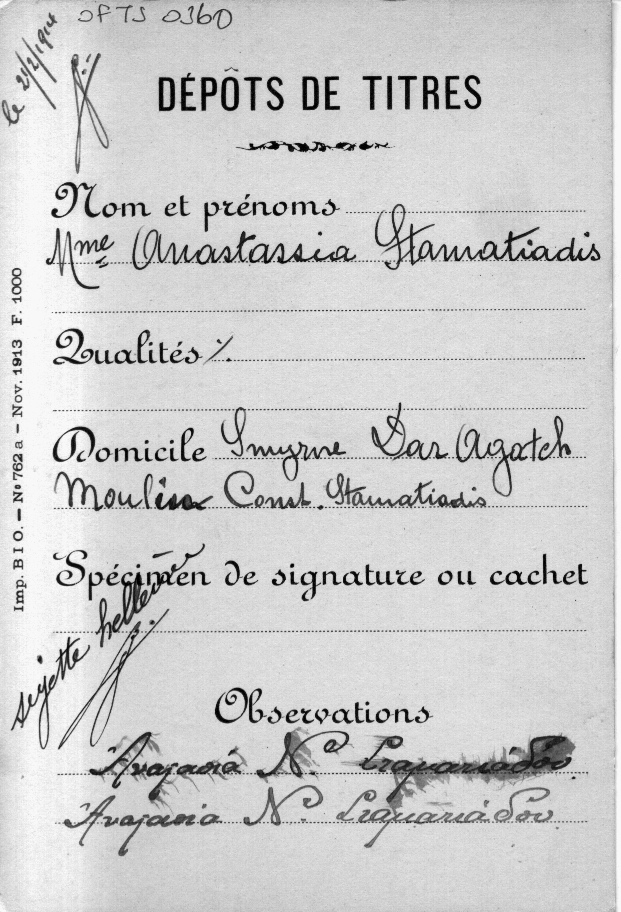 OFTS 0360
le 21/2/1914
DÉPÔTS DE TITRES
Nom et prénoms
Mme Anastassia Stamatiadis
Qualités ٪
Domicile Smyrne Dar Agatch
Moulin Const. Stamatiadis
Spécimen de signature ou cachet
sujette hellène
Observations
Ἀναστασία Ν. Σταματιάδου
Ἀναστασία Ν. Σταματιάδου
Imp. BIO. — No 762 a — Nov. 1913 F. 1000